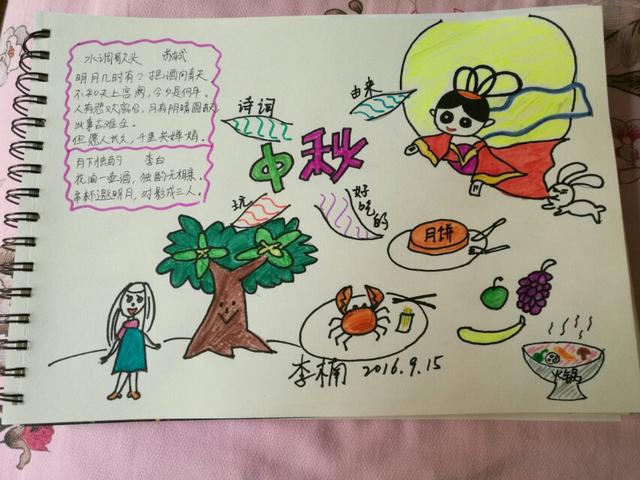 水调歌头 苏轼
明月几时有？把酒问青天
不知天上宫阙，今夕是何年。
人有悲欢离合，月有阴晴圆缺
此事古难全。
但愿人长久，千里共婵娟。
月下独酌 李白
花间一壶酒，独酌无相亲。
举杯邀明月，对影成三人。
诗词
由来
中秋
玩
好吃的
月饼
火锅
李楠 2016.9.15